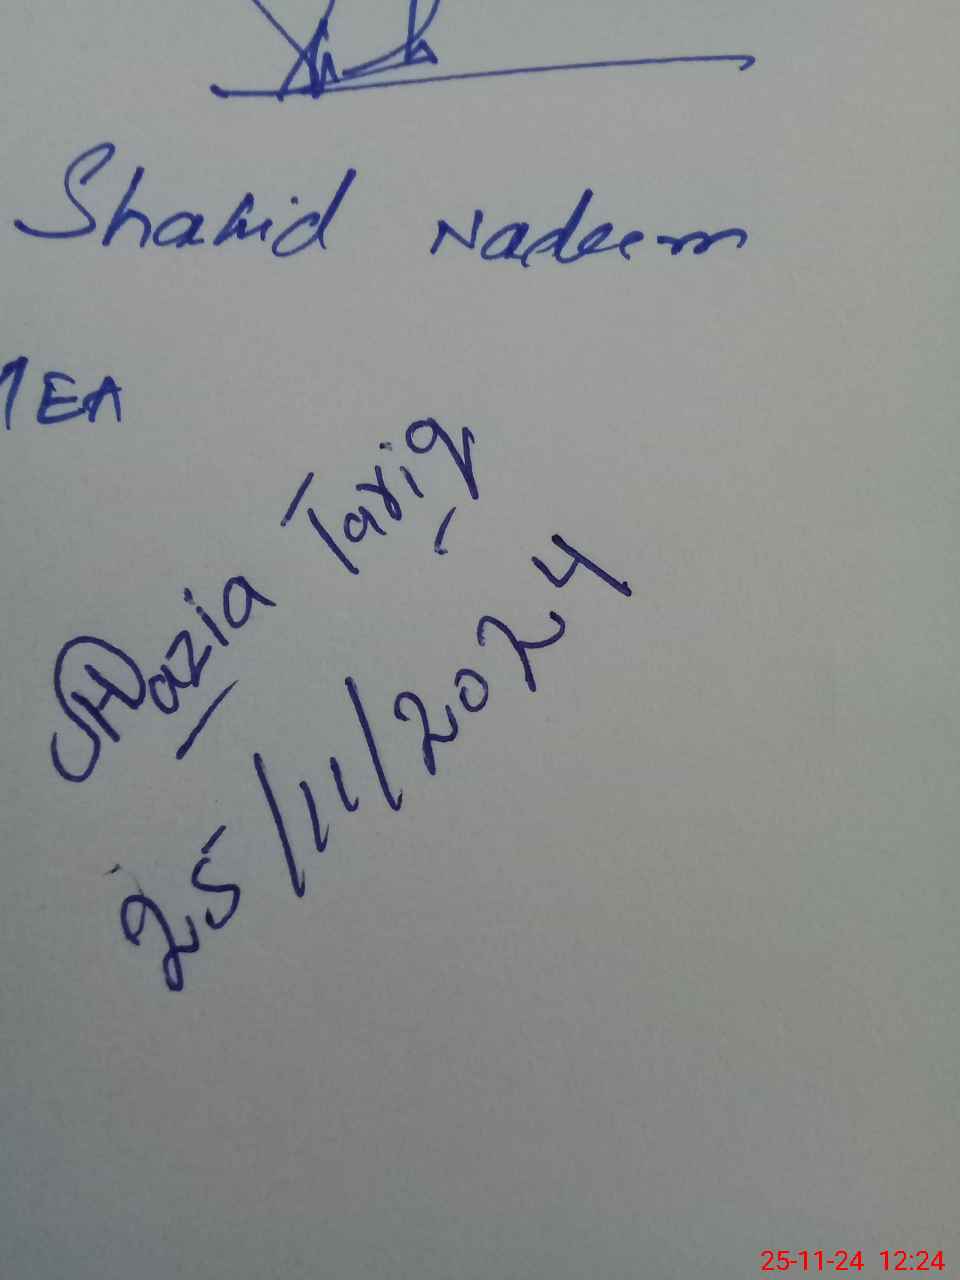 Shahid Nadeem
MEA
Nazia Tariq
25/11/2024
25-11-24 12:24